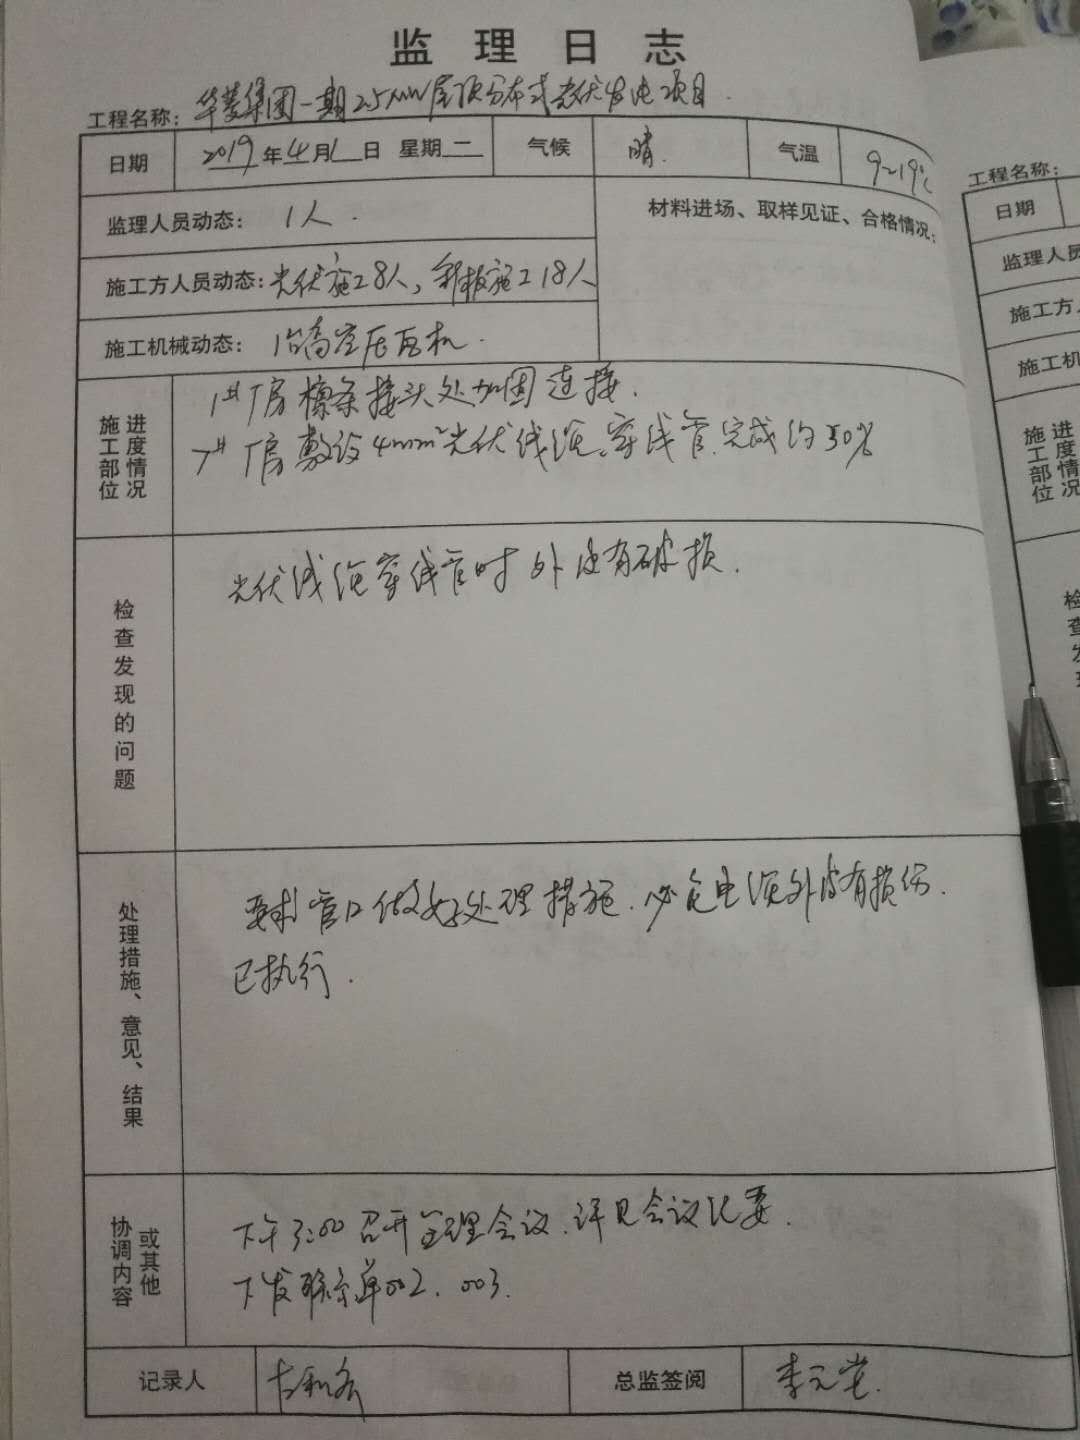 监理日志
工程名称：华菱集团一期2.5MW屋顶分布式光伏发电项目.
日期 2019年4月1日 星期二 气候 晴. 气温 9~19℃
监理人员动态： 1人. 材料进场、取样见证、合格情况：
施工方人员动态：光伏施工8人，彩板施工18人
施工机械动态： 1台高空压瓦机.
施工部位 进度情况
1# 厂房檩条接头处加固连接.
7# 厂房敷设4mm²光伏线缆、穿线管.完成约50%
检查发现的问题
光伏线缆穿线管时外皮有破损.
处理措施、意见、结果
要求管口做好处理措施.必免电缆外皮有损伤.
已执行.
协调内容 或其他
下午3:00召开监理会议.详见会议纪要.
下发联系单002. 003.
记录人 总监签阅
工程名称：
日期
监理人员
施工方人
施工机
施工部位 进度情况
检查发现